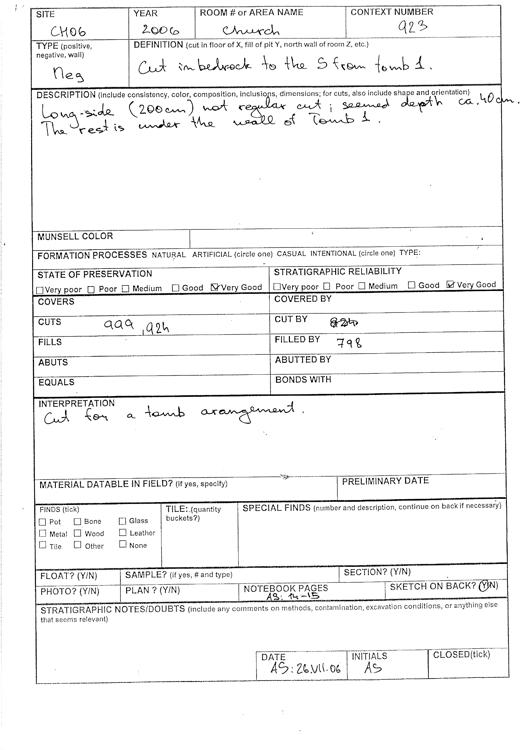 SITE YEAR ROOM # or AREA NAME CONTEXT NUMBER
CH06 2006 Church 923
TYPE (positive, negative, wall) DEFINITION (cut in floor of X, fill of pit Y, north wall of room Z, etc.)
Neg Cut in bedrock to the S from tomb 1.
DESCRIPTION (Include consistency, color, composition, inclusions, dimensions; for cuts, also include shape and orientation)
Long-side (200cm) not regular cut; seemed depth ca. 40cm.
The rest is under the wall of Tomb 1.
MUNSELL COLOR
FORMATION PROCESSES NATURAL ARTIFICIAL (circle one) CASUAL INTENTIONAL (circle one) TYPE:
STATE OF PRESERVATION STRATIGRAPHIC RELIABILITY
☐Very poor ☐ Poor ☐ Medium ☐ Good ☑Very Good ☐Very poor ☐ Poor ☐ Medium ☐ Good ☑ Very Good
COVERS COVERED BY
CUTS 999, 924 CUT BY
FILLS FILLED BY 798
ABUTS ABUTTED BY
EQUALS BONDS WITH
INTERPRETATION
Cut for a tomb arangement.
MATERIAL DATABLE IN FIELD? (if yes, specify) PRELIMINARY DATE
FINDS (tick) TILE:.(quantity buckets?) SPECIAL FINDS (number and description, continue on back if necessary)
☐ Pot ☐ Bone ☐ Glass
☐ Metal ☐ Wood ☐ Leather
☐ Tile ☐ Other ☐ None
FLOAT? (Y/N) SAMPLE? (if yes, # and type) SECTION? (Y/N)
PHOTO? (Y/N) PLAN ? (Y/N) NOTEBOOK PAGES AS: 14-15 SKETCH ON BACK? (Y/N)
STRATIGRAPHIC NOTES/DOUBTS (include any comments on methods, contamination, excavation conditions, or anything else
that seems relevant)
DATE INITIALS CLOSED(tick)
AS: 26.VII.06 AS